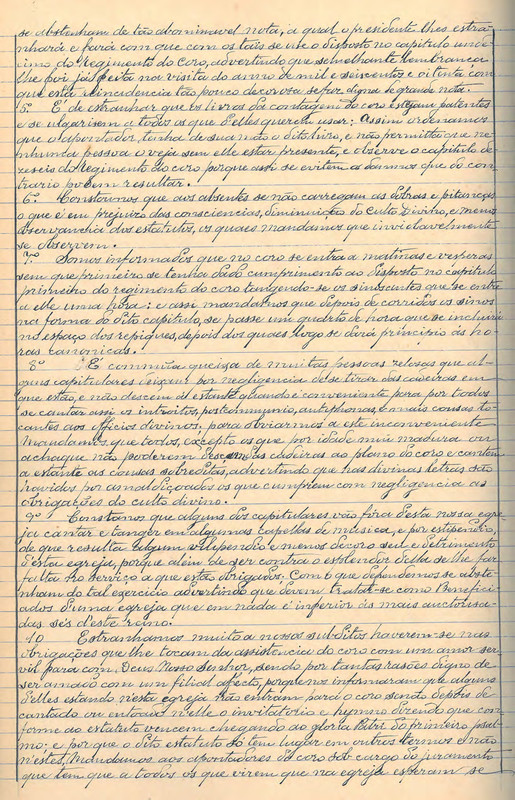 se abstenham de tão abominavel nota, a qual o presidente lhes estra-
nhará e fará com que com os taes se use o disposto no capitulo unde-
cimo do Regimento do Coro, advertindo que similhante lembrança
lhe foi já feita na visita do anno de mil e seiscentos e oitenta com
que esta reincidencia tão pouco decorosa se faz digna de grande nota.
5º É de estranhar que os livros da contagem do coro estejam patentes
e se vulgarisem a todos os que d'elles querem usar: Assim ordenamos
que o apontador, tenha de sua mão o dito livro, e não permitta que ne-
nhuma pessoa o veja sem elle estar presente, e observe o capitulo de-
zeseis do Regimento do coro porque assi se evitem os damnos que do con-
trario podem resultar.
6º Constou-nos que aos absentes se não carregam as obras e pitanças
o que é em prejuizo das consciencias, diminuição do Culto Divino, e menos
observancia dos estatutos, os quaes mandamos que inviolavelmente
se observem.
7º Somos informados que no coro se entra a matinas e vesperas
sem que primeiro se tenha dado cumprimento ao disposto no capitulo
primeiro do regimento do coro tangendo-se os sinos antes que se entre
a elle uma hora: e assi mandamos que depois de corridos os sinos
na forma do dito capitulo, se passe um quarto de hora que se incluirá
no espaço dos repiques, depois dos quaes logo se dará principio ás ho-
ras canonicas.
8º É commũa queixa de muitas pessoas zelosas que al-
guns capitulares deixam por negligencia de se tirar das cadeiras em
que estão, e não descem á estante quando é conveniente para por todos
se cantar assi os introitos, postcommunio, antiphonas, e mais cousas to-
cantes aos officios divinos: para obviarmos a este inconveniente
Mandamos, que todos, excepto os que por idade mui madura ou
achaque não poderem desçam das cadeiras ao plano do coro e cantem
a estante as cousas sobreditas, advertindo que nas divinas letras são
havidos por amaldiçoados os que cumprem com negligencia as
obrigações do culto divino.
9º Consta-nos que alguns dos capitulares vão fóra d'esta nossa egre-
ja cantar e tanger em algumas capellas de musica, e por estipendio,
de que resulta algum vilipendio e menos decoro seu e detrimento
d'esta egreja, porque além de ser contra o esplendor d'ella se lhe faz
falta no serviço a que estão obrigados. Com o que defendemos se abste-
nham do tal exercicio advertindo que devem tratar-se como Benefici-
ados d'uma egreja que em nada é inferior ás mais auctorisa-
das sés d'este reino.
10 Estranhamos muito a nossos subditos haverem-se nas
obrigações que lhe tocam da assistencia do coro com um amor ser-
vil para com Deus Nosso Senhor, sendo por tantas rasões digno de
ser amado com um filial affecto, porque nos informaram que alguns
d'elles estando n'esta egreja não entram para o coro senão depois de
cantado ou entoado n'elle o invitatorio e hymno dizendo que con-
forme ao estatuto vencem chegando ao gloria Patri do primeiro psal-
mo: e porque o dito estatuto só tem lugar em outros termos e não
n'estes, Mandamos aos apontadores do coro sob cargo do juramento
que tem que a todos os que virem que na egreja esperam se